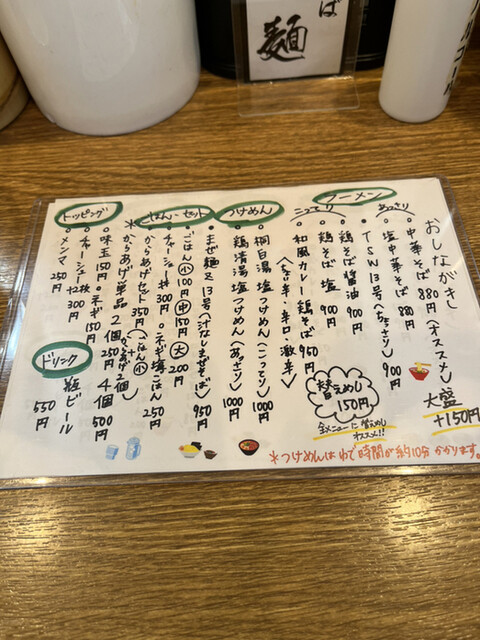 ば
麺
おしながき
ラーメン
あっさり
中華そば 880円 (オススメ)
塩中華そば 880円
大盛
+150円
TSW13号 (ちょっこり) 900円
こってり
鶏そば 醤油 900円
鶏そば 塩 900円
和風カレー鶏そば 950円
〈ちょい辛・辛口・激辛〉
替えめし
150円
全メニューに替えめし
オススメ!!
つけめん
桐白湯 塩つけめん (こってり) 1000円
鶏清湯 塩つけめん (あっさり) 1000円
まぜ麺&13号 (汁なしまぜそば) 950円
ごはん・セット
ごはん 小 100円 中 150円 大 200円
チャーシュー丼 300円
ネギ塩ごはん 250円
*からあげセット 350円 (ごはん小+からあげ2個)
からあげ単品 2個 250円 4個 500円
トッピング
味玉 150円
ネギ 150円
チャーシュー2枚 300円
メンマ 250円
ドリンク
瓶ビール 550円
*つけめんはゆで時間が約10分かかります。